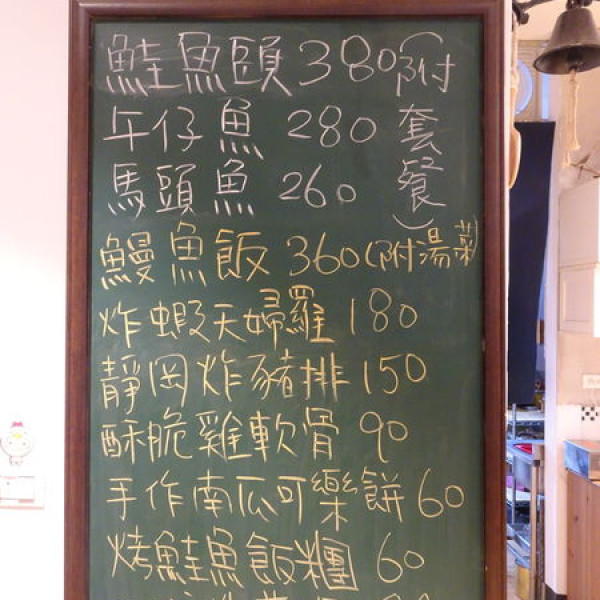 鮭魚頭380(附
午仔魚 280 套
馬頭魚 260 餐)
鰻魚飯 360(附湯菜)
炸蝦天婦羅 180
靜岡炸豬排 150
酥脆雞軟骨 90
手作南瓜可樂餅 60
烤鮭魚飯糰 60